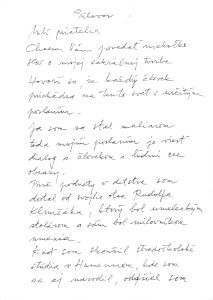 Príhovor
Milí priatelia
Chcem Vám povedať niekoľko
slov o mojej sakrálnej tvorbe
Hovorí sa, že každý človek
prichádza na tento svet s určitým
poslaním.
Ja som sa stal maliarom
teda mojím poslaním je viesť
dialóg s človekom a ľuďmi cez
obrazy.
Prvé podnety v detstve som
dostal od svojho otca Rudolfa
, ktorý bol umeleckým
stolárom a sám bol milovníkom
umenia.
Keď som skončil stredoškolské
štúdia v Humennom, kde som
sa aj narodil, odišiel som